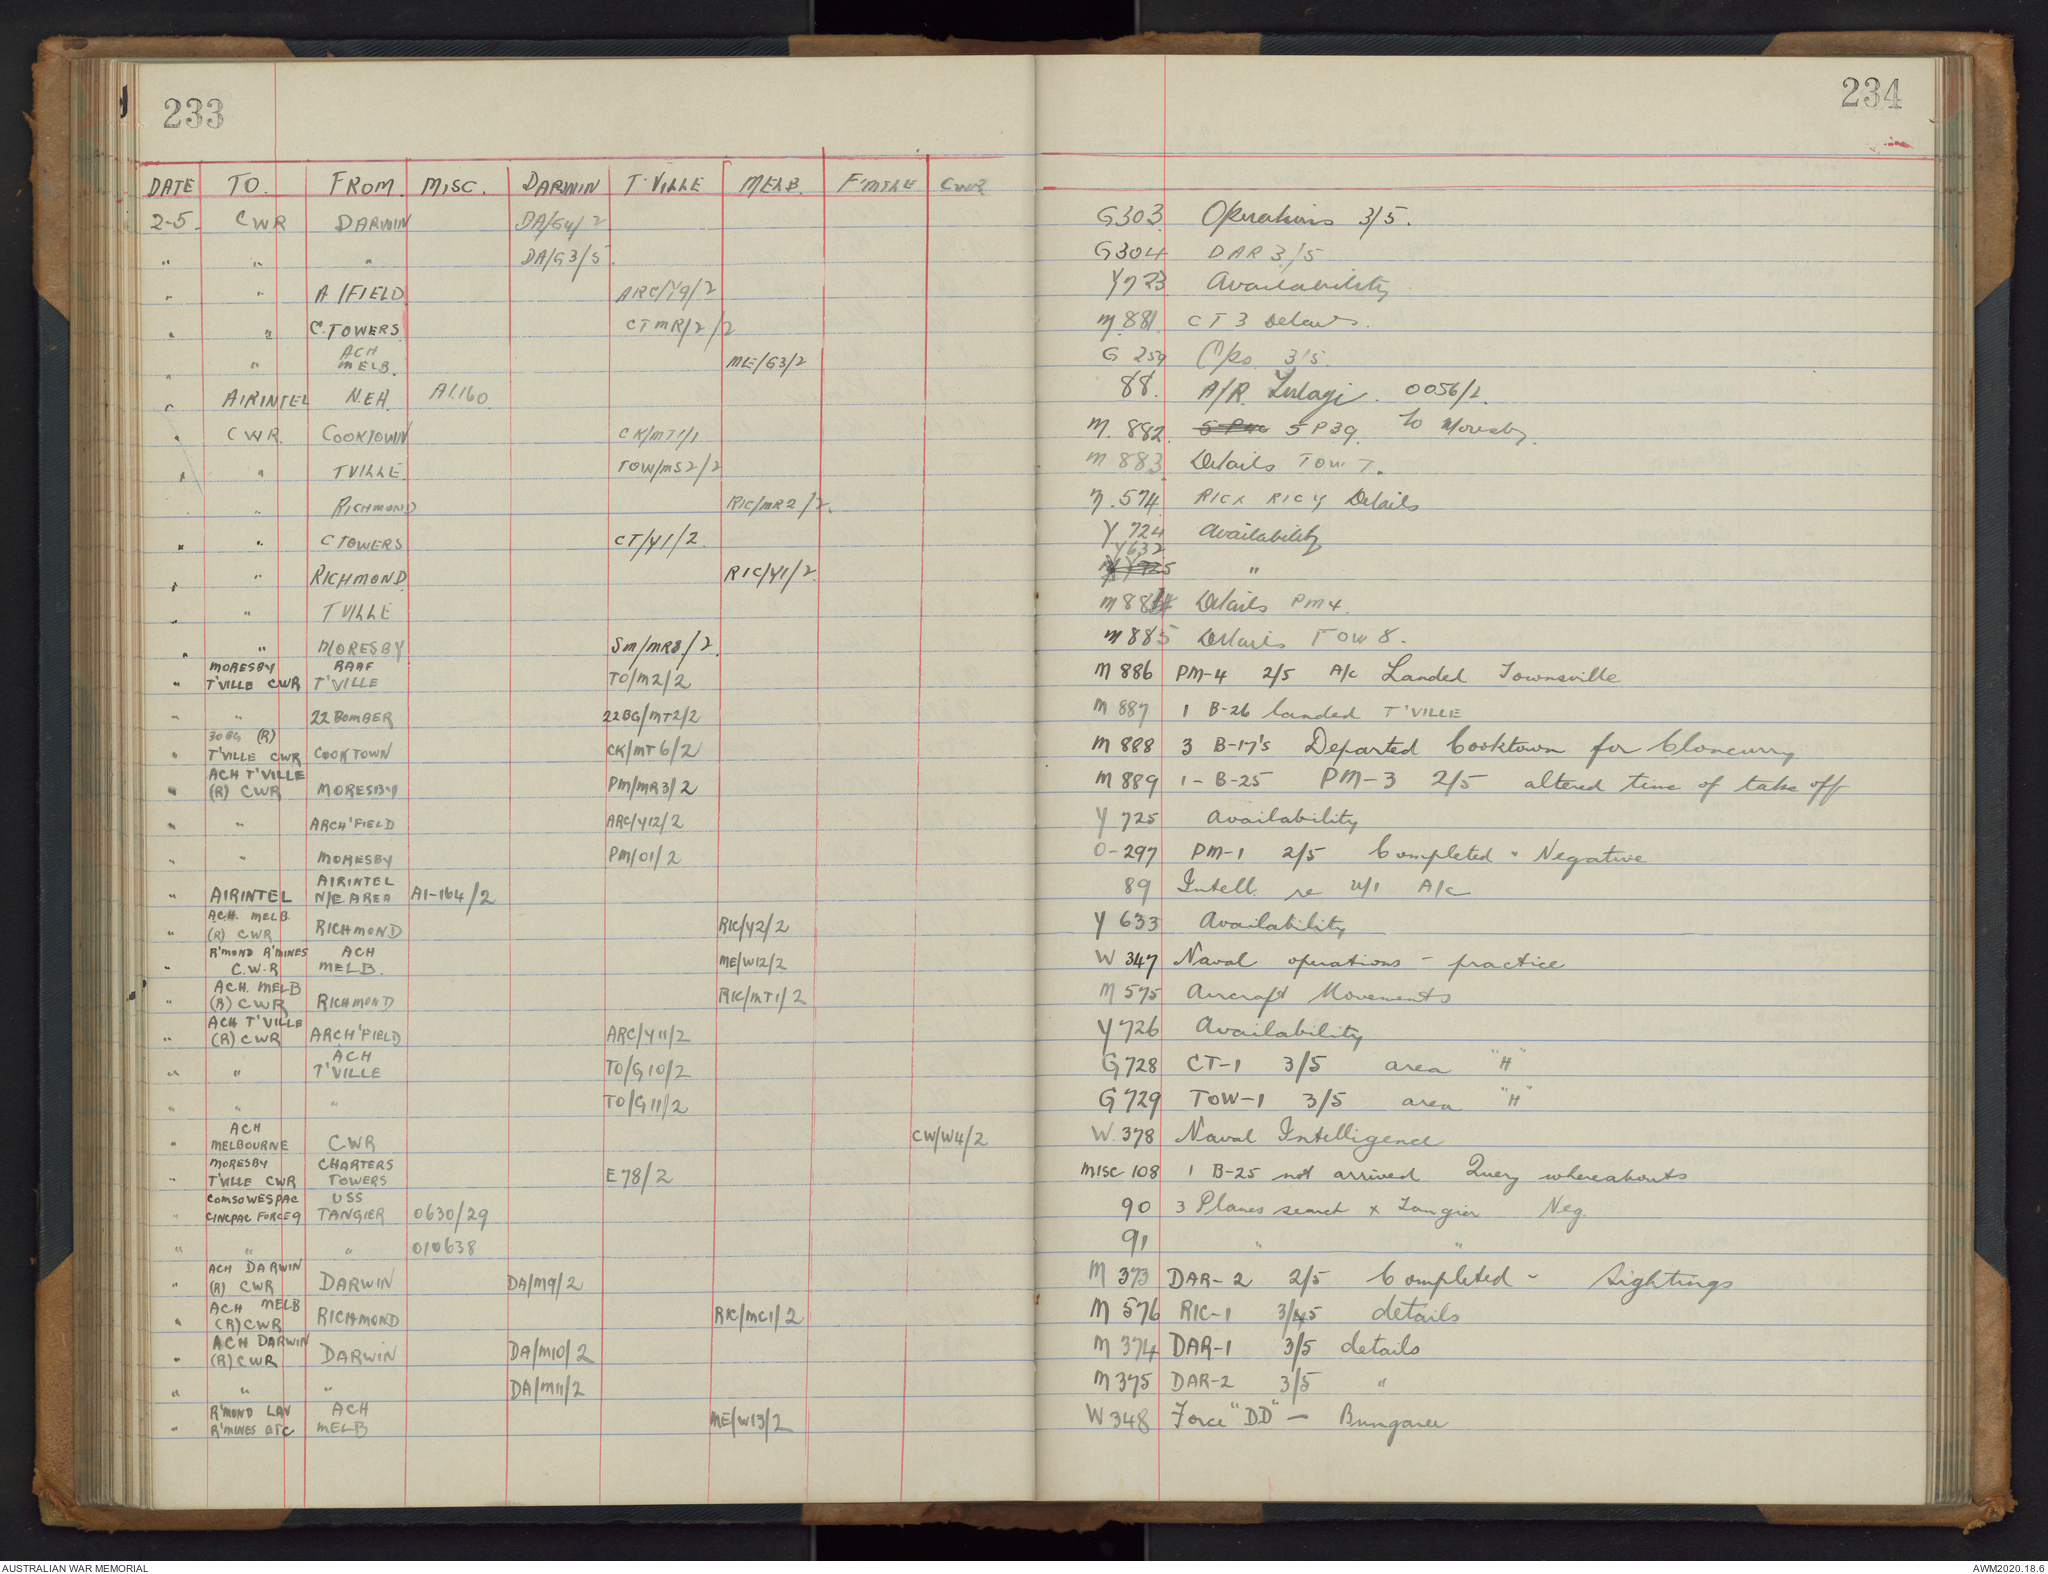 233
DATE TO. FROM. MISC. DARWIN T'VILLE MELB. F'MTLE CWR
2-5. CWR DARWIN DA/G4/2
" " " DA/G3/5
" " A/FIELD ARC/Y9/2
" " C.TOWERS CTMR/2/2
ACH
" " MELB. ME/G3/2
" AIRINTEL N.EA. A1.160
" CWR. COOKTOWN CK/MT1/1
" " TVILLE TOW/MS2/2
" " RICHMOND RIC/MR2/2.
" " C TOWERS CT/Y1/2
" " RICHMOND RIC/Y1/2
" " TVILLE
" " MORESBY SM/MR8/2.
MORESBY RAAF
" T'VILLE CWR T'VILLE TO/M2/2
" " 22 BOMBER 22BG/MT2/2
30 BG (R)
" T'VILLE CWR COOKTOWN CK/MT6/2
ACH T'VILLE
" (R) CWR MORESBY PM/MR3/2
" " ARCH'FIELD ARC/Y12/2
" " MORESBY PM/O1/2
AIRINTEL
" AIRINTEL N/E AREA A1-164/2
ACH. MELB.
" (R) CWR RICHMOND RIC/Y2/2
R'MOND R'MINES ACH
" C.W.R MELB. ME/W12/2
ACH. MELB
" (R) CWR RICHMOND RIC/MT1/2
ACH T'VILLE
" (R) CWR ARCH'FIELD ARC/Y11/2
ACH
" " T'VILLE TO/G10/2
" " " TO/G11/2
ACH
" MELBOURNE CWR CW/W4/2
MORESBY CHARTERS
" T'VILLE CWR TOWERS E78/2
COMSOWESPAC USS
" CINCPAC FORCE 9 TANGIER 0630/29
" " " 010638
ACH DARWIN
" (R) CWR DARWIN DA/M9/2
ACH MELB
" (R) CWR RICHMOND RIC/MC1/2
ACH DARWIN
" (R) CWR DARWIN DA/M10/2
" " " DA/M11/2
R'MOND LAV ACH
" R'MINES ETC MELB ME/W13/2
234
G303 Operations 3/5.
G304 DAR 3/5
Y723 Availability
M.881. CT 3 Details.
G 259 Ops. 3/5.
88. A/R Tulagi. 0056/2.
M. 882. 5 P40 5 P39. to Moresby.
M 883 Details TOW 7.
M.574 RICX RICY Details
Y 724 Availability
Y632
Y725 "
M884 Details PM4.
M885 Details TOW 8.
M 886 PM-4 2/5 A/c Landed Townsville
M 887 1 B-26 landed T'VILLE
M 888 3 B-17's Departed Cooktown for Cloncurry
M 889 1-B-25 PM-3 2/5 altered time of take off
Y 725 Availability
O-297 PM-1 2/5 Completed - Negative
89 Intell. re U/I A/c
Y 633 Availability
W 347 Naval operations - practice
M 575 Aircraft Movements
Y 726 Availability
G 728 CT-1 3/5 area "H"
G 729 TOW-1 3/5 area "H"
W. 378 Naval Intelligence
MISC 108 1 B-25 not arrived Query whereabouts
90 3 Planes search x Tangier Neg.
91 " "
M 373 DAR-2 2/5 Completed - Sightings
M 576 RIC-1 3/5 details
M 374 DAR-1 3/5 details
M 375 DAR-2 3/5 "
W 348 Force "DD" - Bungaree
AUSTRALIAN WAR MEMORIAL
AWM2020.18.6